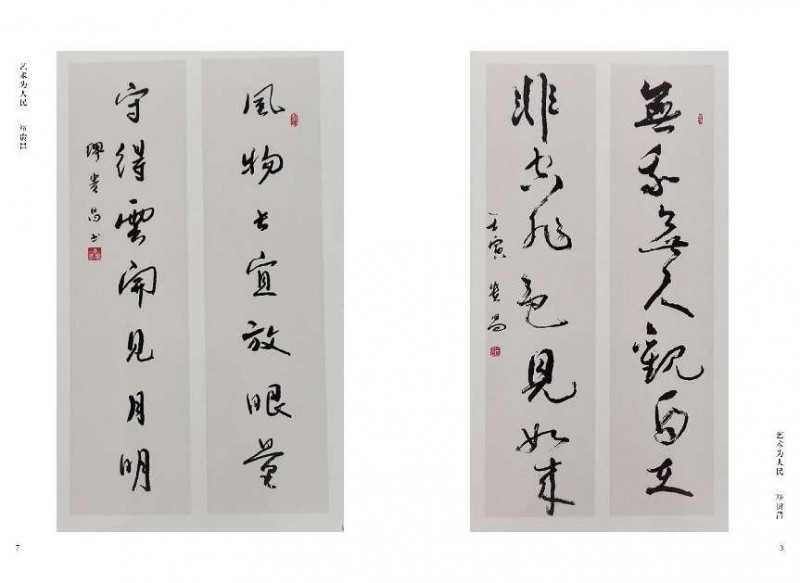 艺术为人民 缪贵昌
風物长宜放眼量
守得雲開见月明
缪贵昌书
7
無我無人觀自在
非空非色見如来
壬寅 贵昌
艺术为人民 缪贵昌